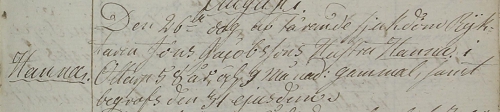 Augusti.
Den 26te dog af tärande sjukdom Ryk-
taren Jöns Jacobssons Hustru Hanna i
Hanna.
år, och 9 Månad: gammal, samt
begrofs den 31 ejusdem.